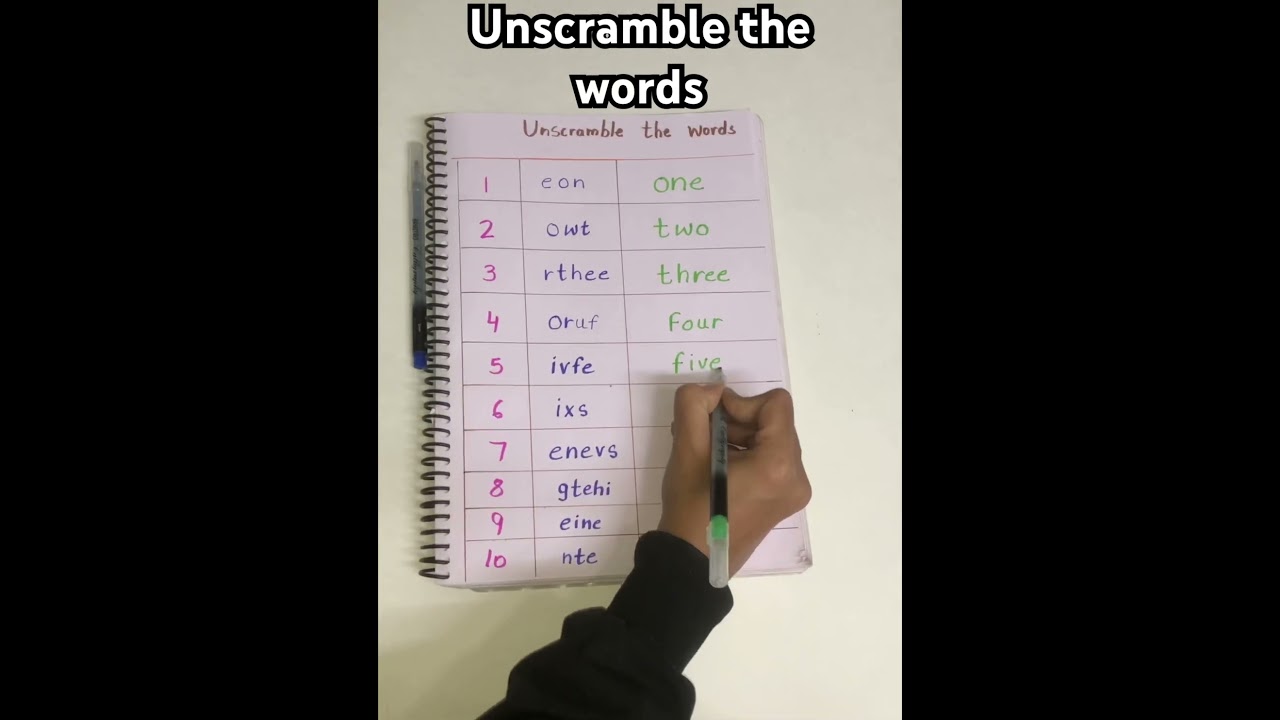 Unscramble the
words
Unscramble the words
1 eon one
2 owt two
3 rthee three
4 oruf Four
5 ivfe five
6 ixs
7 enevs
8 gtehi
9 eine
10 nte